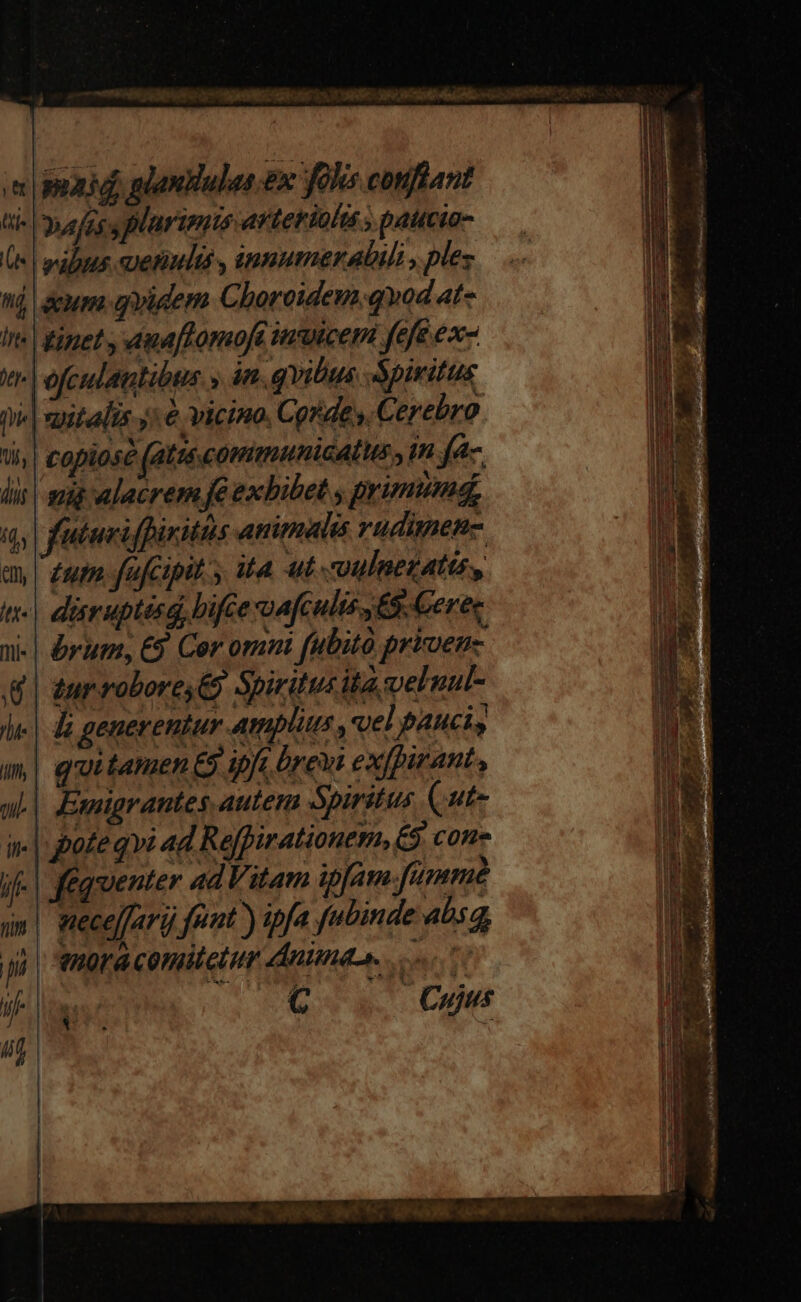 glandulas ex ſolis conſtant
vaſis, plurimis arteriolis, paucio-
ribus venulis, innumerabili, ple-
xum qvidem Choroidem qvod at-
tinet, anaſtomoſi invicem ſeſe ex-
oſculantibus, in qvibus Spiritus
vitalis, è vicino Corde, Cerebro
copiosè ſatis communicatus, in ſa-
nis alacrem ſe exhibet, primumq;
futuri ſpiritûs animalis rudimen-
tum ſuſcipit, ita ut vulneratis,
disruptisq; biſce vaſculis, & Cere-
brum, & Cor omni ſubitò priven-
tur robore, & Spiritus ita vel nul-
li generentur amplius, vel pauci,
qvi tamen & ipſi brevi exſpirant,
Emigrantes autem Spiritus (ut-
pote qvi ad Reſpirationem, & con-
ſeqventer ad Vitam ipſam ſummè
neceſſarij ſunt) ipſa ſubinde absq;
morâ comitetur Anima.
C Cujus